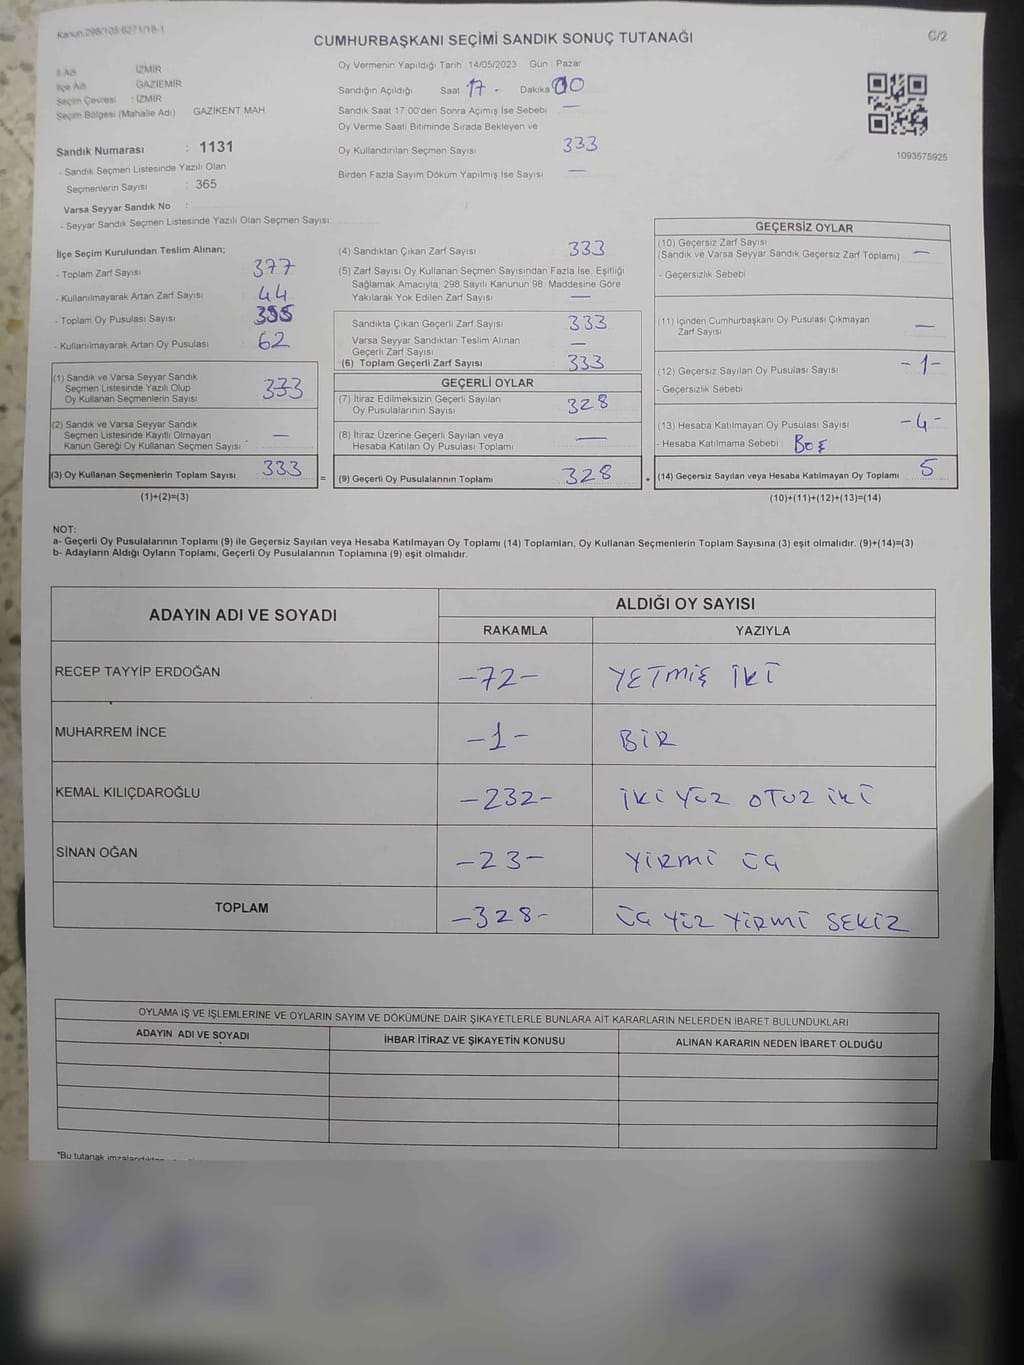 Kanun.298/105.6271/18-1
CUMHURBAŞKANI SEÇİMİ SANDIK SONUÇ TUTANAĞI
C/2
İl Adı : İZMİR
İlçe Adı : GAZİEMİR
Seçim Çevresi : İZMİR
Seçim Bölgesi (Mahalle Adı) GAZİKENT MAH
Sandık Numarası : 1131
- Sandık Seçmen Listesinde Yazılı Olan
Seçmenlerin Sayısı : 365
Varsa Seyyar Sandık No :
- Seyyar Sandık Seçmen Listesinde Yazılı Olan Seçmen Sayısı:
Oy Vermenin Yapıldığı Tarih 14/05/2023 Gün Pazar
Sandığın Açıldığı Saat 17 - Dakika 00
Sandık Saat 17:00'den Sonra Açımış İse Sebebi —
Oy Verme Saati Bitiminde Sırada Bekleyen ve
Oy Kullandırılan Seçmen Sayısı 333
Birden Fazla Sayım Döküm Yapılmış İse Sayısı —
1093575925
İlçe Seçim Kurulundan Teslim Alınan;
- Toplam Zarf Sayısı 377
- Kullanılmayarak Artan Zarf Sayısı 44
- Toplam Oy Pusulası Sayısı
- Kullanılmayarak Artan Oy Pusulası 62
(1) Sandık ve Varsa Seyyar Sandık
Seçmen Listesinde Yazılı Olup
Oy Kullanan Seçmenlerin Sayısı 333
(2) Sandık ve Varsa Seyyar Sandık
Seçmen Listesinde Kayıtlı Olmayan
Kanun Gereği Oy Kullanan Seçmen Sayısı —
(3) Oy Kullanan Seçmenlerin Toplam Sayısı 333
(1)+(2)=(3)
=
(4) Sandıktan Çıkan Zarf Sayısı 333
(5) Zarf Sayısı Oy Kullanan Seçmen Sayısından Fazla İse, Eşitliği
Sağlamak Amacıyla, 298 Sayılı Kanunun 98. Maddesine Göre
Yakılarak Yok Edilen Zarf Sayısı —
Sandıkta Çıkan Geçerli Zarf Sayısı 333
Varsa Seyyar Sandıktan Teslim Alınan
Geçerli Zarf Sayısı —
(6) Toplam Geçerli Zarf Sayısı 333
GEÇERLİ OYLAR
(7) İtiraz Edilmeksizin Geçerli Sayılan
Oy Pusulalarının Sayısı 328
(8) İtiraz Üzerine Geçerli Sayılan veya
Hesaba Katılan Oy Pusulası Toplamı —
(9) Geçerli Oy Pusulalarının Toplamı 328
+
GEÇERSİZ OYLAR
(10) Geçersiz Zarf Sayısı
(Sandık ve Varsa Seyyar Sandık Geçersiz Zarf Toplamı) —
- Geçersizlik Sebebi
(11) İçinden Cumhurbaşkanı Oy Pusulası Çıkmayan
Zarf Sayısı —
(12) Geçersiz Sayılan Oy Pusulası Sayısı -1-
- Geçersizlik Sebebi
(13) Hesaba Katılmayan Oy Pusulası Sayısı -4-
- Hesaba Katılmama Sebebi BOŞ
(14) Geçersiz Sayılan veya Hesaba Katılmayan Oy Toplamı 5
(10)+(11)+(12)+(13)=(14)
NOT:
a- Geçerli Oy Pusulalarının Toplamı (9) ile Geçersiz Sayılan veya Hesaba Katılmayan Oy Toplamı (14) Toplamları, Oy Kullanan Seçmenlerin Toplam Sayısına (3) eşit olmalıdır. (9)+(14)=(3)
b- Adayların Aldığı Oyların Toplamı, Geçerli Oy Pusulalarının Toplamına (9) eşit olmalıdır.
ADAYIN ADI VE SOYADI
ALDIĞI OY SAYISI
RAKAMLA YAZIYLA
RECEP TAYYİP ERDOĞAN -72- YETMİŞ İKİ
MUHARREM İNCE -1- BİR
KEMAL KILIÇDAROĞLU -232- İKİ YÜZ OTUZ İKİ
SİNAN OĞAN -23- YİRMİ ÜÇ
TOPLAM -328- ÜÇ YÜZ YİRMİ SEKİZ
OYLAMA İŞ VE İŞLEMLERİNE VE OYLARIN SAYIM VE DÖKÜMÜNE DAİR ŞİKAYETLERLE BUNLARA AİT KARARLARIN NELERDEN İBARET BULUNDUKLARI
ADAYIN ADI VE SOYADI İHBAR İTİRAZ VE ŞİKAYETİN KONUSU ALINAN KARARIN NEDEN İBARET OLDUĞU
*Bu tutanak